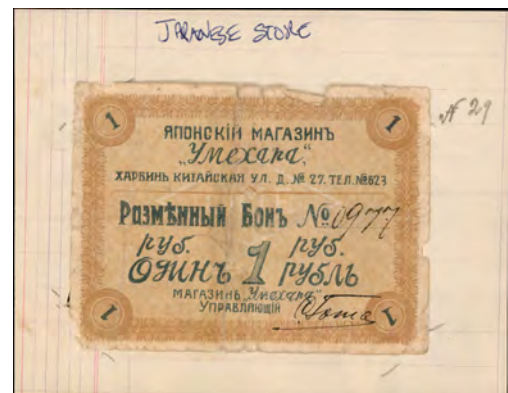 JAPANESE STORE
№ 29
1 1
ЯПОНСКІЙ МАГАЗИНЪ
„Умехара“
ХАРБИНЪ КИТАЙСКАЯ УЛ. Д. № 27. ТЕЛ. №623
Размѣнный Бонъ № 0977
руб. 1 руб.
ОДИНЪ РУБЛЬ
МАГАЗИНЪ „Умехара“
УПРАВЛЯЮЩІЙ
1 1